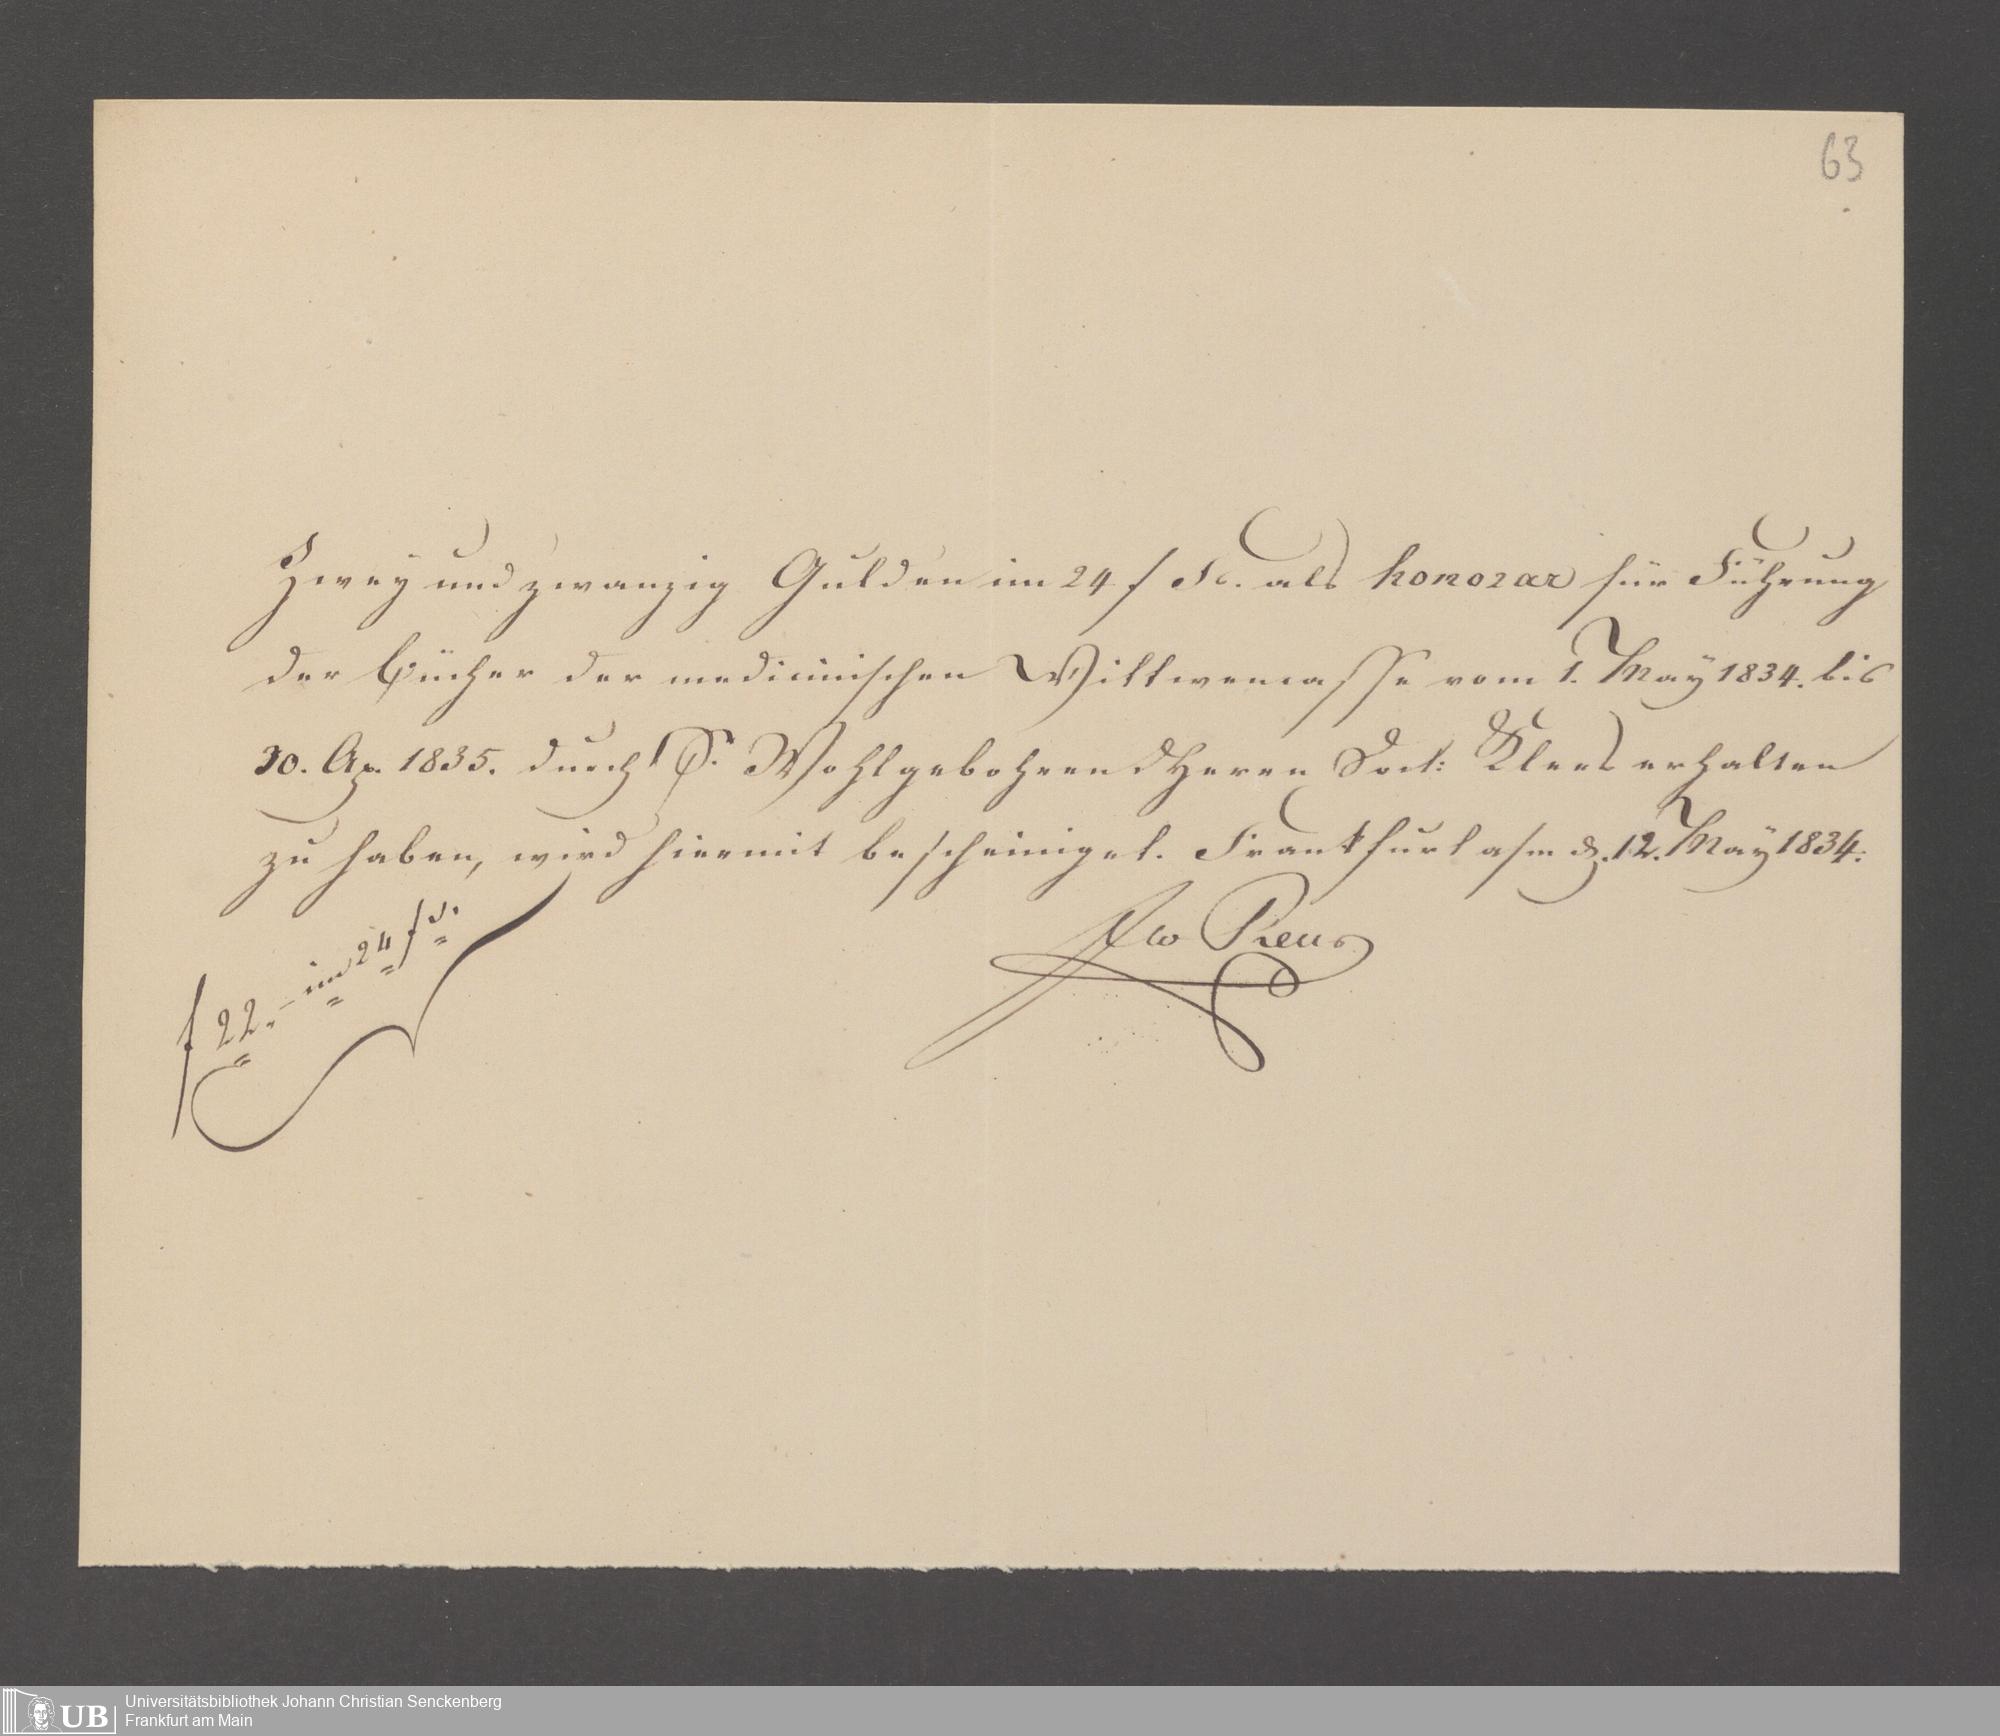 63
Zwey und zwanzig Gulden im 24 f Fs. als honorar für Führung
der Bücher der medicinischen Wittwencasse vom 1. May 1834. bis
30. Ap. 1835. durch S. Wohlgebohren Herrn Doct: Kloss erhalten
zu haben, wird hiermit bescheiniget. Frankfurt a/m d. 12. May 1834.
f 22. – im 24 f
Reus
Universitätsbibliothek Johann Christian Senckenberg
Frankfurt am Main
UB